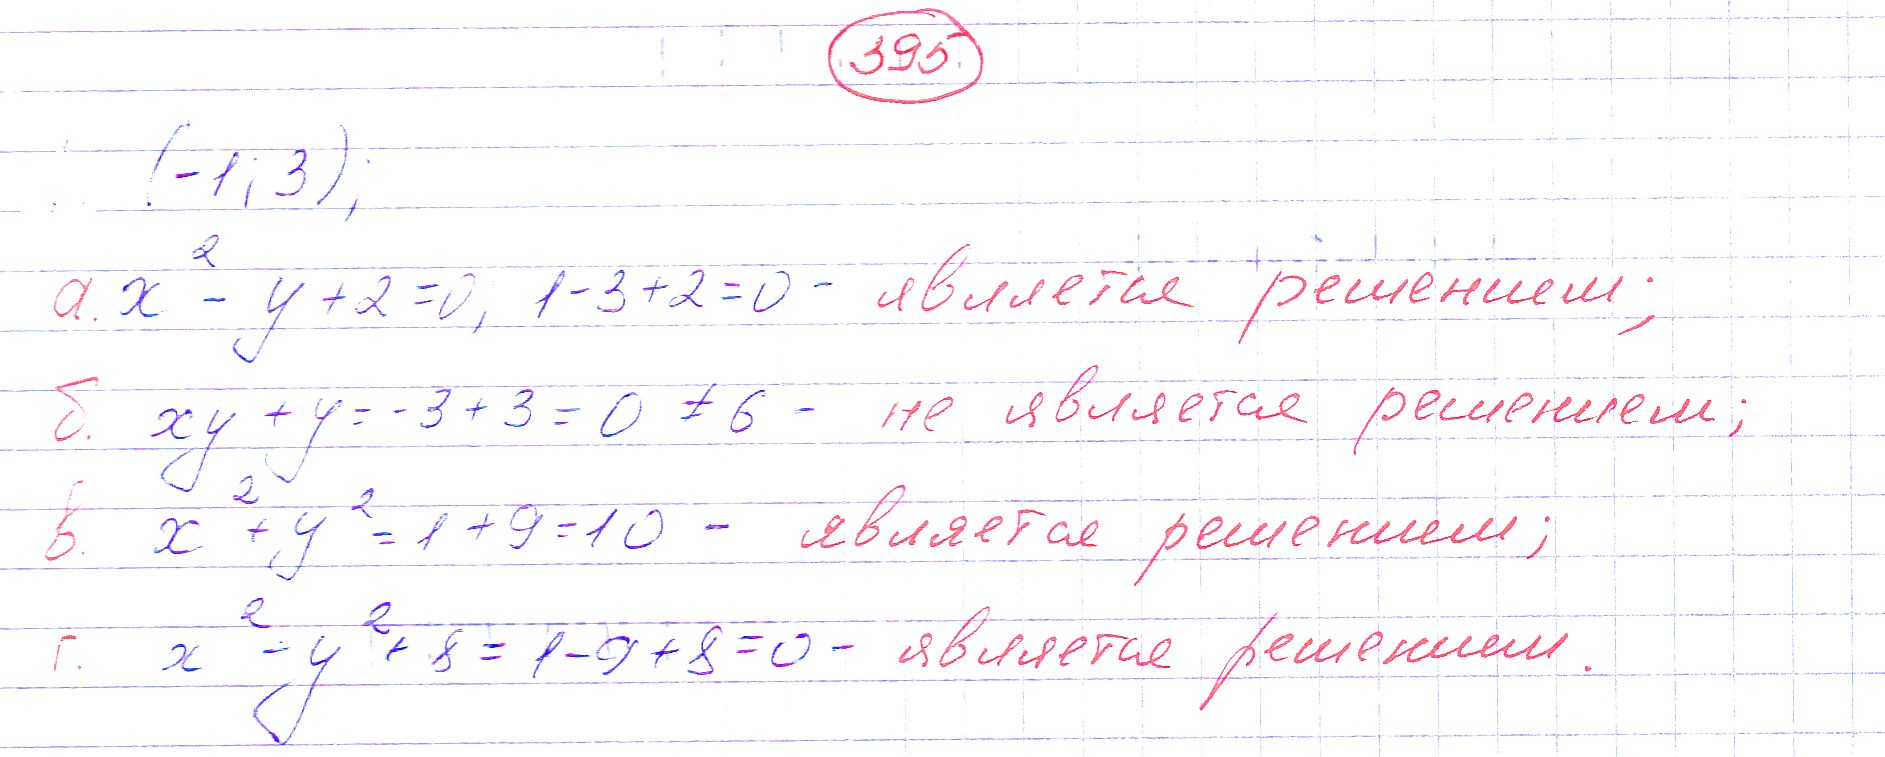 395
(-1; 3);
а. x² - y + 2 = 0; 1 - 3 + 2 = 0 - является решением;
б. xy + y = -3 + 3 = 0 ≠ 6 - не является решением;
в. x² + y² = 1 + 9 = 10 - является решением;
г. x² - y² + 8 = 1 - 9 + 8 = 0 - является решением.